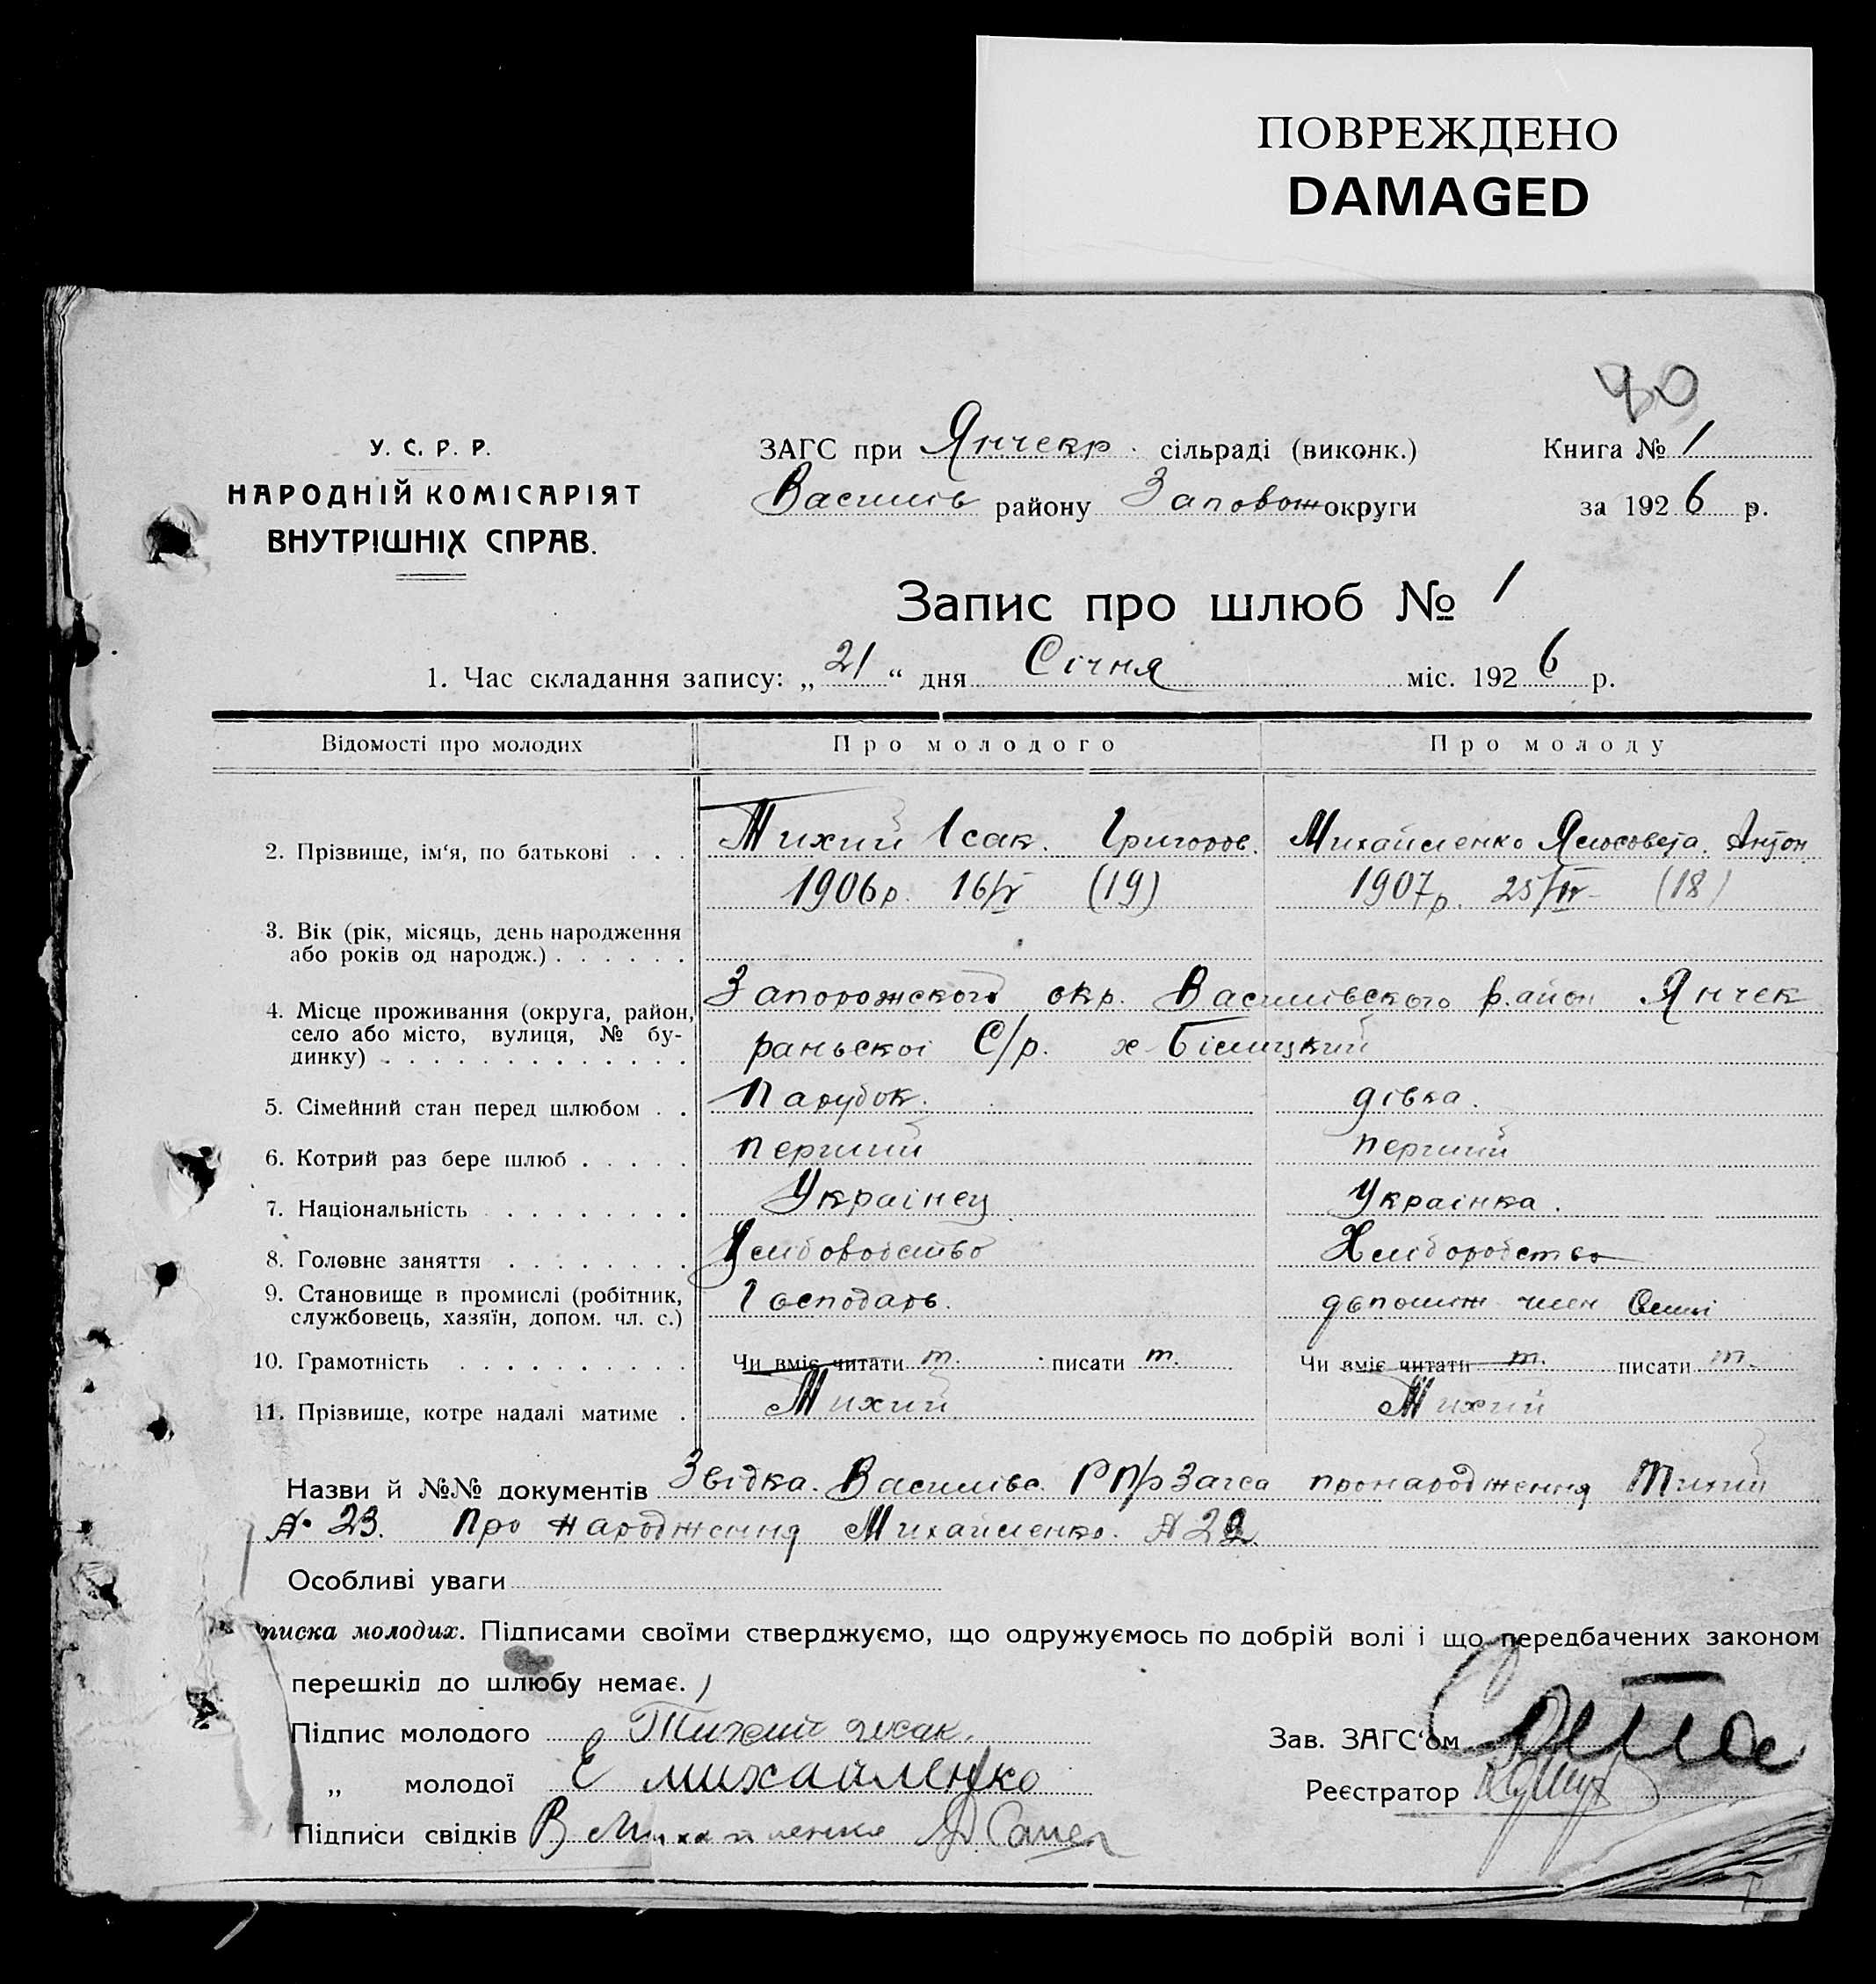 ПОВРЕЖДЕНО
DAMAGED
90
У. С. Р. Р.
НАРОДНІЙ КОМІСАРІЯТ
ВНУТРІШНІХ СПРАВ.
ЗАГС при Янчекр. сільраді (виконк.)
Василів району Запорож округи
Книга № 1
за 1926 р.
Запис про шлюб № 1
1. Час складання запису: „21“ дня Січня міс. 1926 р.
Відомості про молодих Про молодого Про молоду
2. Прізвище, ім‘я, по батькові . . . Тихий Ісак. Григоров. Михайленко Ялосовета. Антон
1906р. 16/V (19) 1907р. 25/IV (18)
3. Вік (рік, місяць, день народження
або років од народж.) . . . . . .
4. Місце проживання (округа, район, Запорожского окр. Василівского район Янчек
село або місто, вулиця, № бу-
динку) . . . . . . . . . . . . . раньскоі С/р. х Білицкий
5. Сімейний стан перед шлюбом . . Парубок. дівка.
6. Котрий раз бере шлюб . . . . . перший перший
7. Національність . . . . . . . . Украінец Украінка.
8. Головне заняття . . . . . . . . Хліборобство Хліборобство
9. Становище в промислі (робітник, Господарь. допоміж член Семі
службовець, хазяїн, допом. чл. с.)
10. Грамотність . . . . . . . . . . Чи вміє читати т. писати т. Чи вміє читати т. писати т.
11. Прізвище, котре надалі матиме . Тихий Тихий
Назви й №№ документів Звідка. Василівс. РПР Загса про народження Тихий
№ 23. Про народження Михайленко. № 22.
Особливі уваги
писка молодих. Підписами своїми стверджуємо, що одружуємось по добрій волі і що передбачених законом
перешкід до шлюбу немає.
Підпис молодого Тихий Исак.
Зав. ЗАГС‘ом
„ молодої Е Михайленко
Реєстратор
Підписи свідків В Михайленко